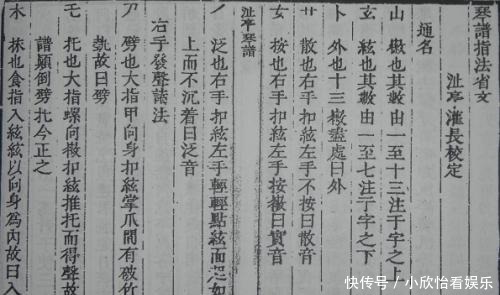 琴譜指法省文
沚亭滙長校定
通名
山 徽也其數由一至十三注于字之上
玄 絃也其數由一至七注于字之下
卜 外也十三徽盡處曰外
廾 散也右手扣絃左手不按曰散音
女 按也右手扣絃左手按徽曰實音
沚亭琴譜
泛也右手扣絃左手輕輕點絃面
上而不沉着曰泛音
右手發聲諸法
尸 劈也大指甲向身扣絃掌爪間有破竹
執故曰劈
乇 托也大指螺向徽扣絃推托而得聲故
譜顛倒劈托今正之
木 抹也食指入絃絃以向身為內故曰入
快传号/小欣怡看娱乐